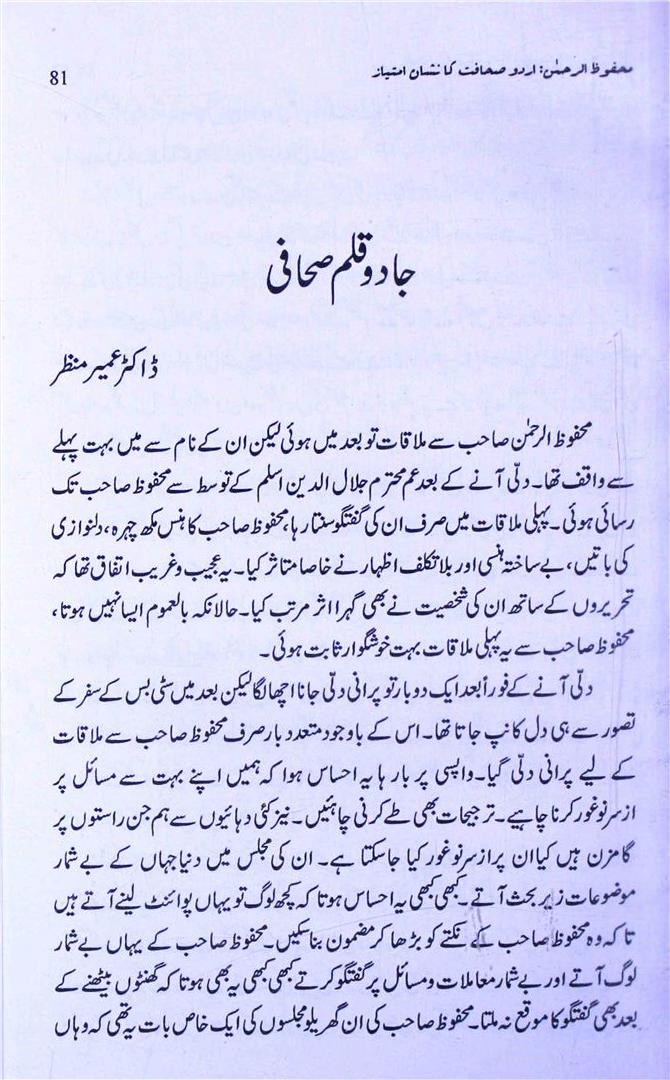 محفوظ الرحمٰن: اردو صحافت کا نشان امتیاز
81
جادو قلم صحافی
ڈاکٹر عمیر منظر
محفوظ الرحمٰن صاحب سے ملاقات تو بعد میں ہوئی لیکن ان کے نام سے میں بہت پہلے
سے واقف تھا۔ دلّی آنے کے بعد عم محترم جلال الدین اسلم کے توسط سے محفوظ صاحب تک
رسائی ہوئی۔ پہلی ملاقات میں صرف ان کی گفتگو سنتا رہا، محفوظ صاحب کا ہنس مکھ چہرہ، دلنوازی
کی باتیں، بے ساختہ ہنسی اور بلا تکلف اظہار نے خاصا متاثر کیا۔ یہ عجیب و غریب اتفاق تھا کہ
تحریروں کے ساتھ ان کی شخصیت نے بھی گہرا اثر مرتب کیا۔ حالانکہ بالعموم ایسا نہیں ہوتا،
محفوظ صاحب سے یہ پہلی ملاقات بہت خوشگوار ثابت ہوئی۔
دلّی آنے کے فوراً بعد ایک دو بار تو پرانی دلّی جانا اچھا لگا لیکن بعد میں سٹی بس کے سفر کے
تصور سے ہی دل کانپ جاتا تھا۔ اس کے باوجود متعدد بار صرف محفوظ صاحب سے ملاقات
کے لیے پرانی دلّی گیا۔ واپسی پر بارہا یہ احساس ہوا کہ ہمیں اپنے بہت سے مسائل پر
از سر نو غور کرنا چاہیے۔ ترجیحات بھی طے کرنی چاہئیں۔ نیز کئی دہائیوں سے ہم جن راستوں پر
گامزن ہیں کیا ان پر از سر نو غور کیا جاسکتا ہے۔ ان کی مجلس میں دنیا جہاں کے بے شمار
موضوعات زیر بحث آتے۔ کبھی کبھی یہ احساس ہوتا کہ کچھ لوگ تو یہاں پوائنٹ لینے آتے ہیں
تاکہ وہ محفوظ صاحب کے نکتے کو بڑھا کر مضمون بنا سکیں۔ محفوظ صاحب کے یہاں بے شمار
لوگ آتے اور بے شمار معاملات و مسائل پر گفتگو کرتے کبھی کبھی یہ بھی ہوتا کہ گھنٹوں بیٹھنے کے
بعد بھی گفتگو کا موقع نہ ملتا۔ محفوظ صاحب کی ان گھریلو مجلسوں کی ایک خاص بات یہ تھی کہ وہاں